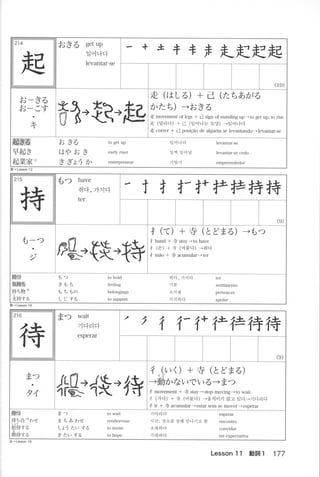 214
起
おきる get up
일어나다
levantar-se
(10)
お－きる
お－こす
・
キ
走 (はしる) + 己 (たちあがる
かたち) →おきる
走 movement of legs + 己 sign of standing up →to get up, to rise
走 correr + 己 posição de alguém se levantando→levantar-se
起きる お きる to get up 일어나다 levantar-se
早起き はや お き early riser 일찍 일어남 levantar-se cedo
起業家 き ぎょう か entrepreneur 기업가 empreendedor
215
持
もつ have
쥐다, 가지다
ter
(9)
も－つ
・
ジ
扌 (て) + 寺 (とどまる) →もつ
扌 hand + 寺 stay→to have
扌 mão + 寺 acumular →ter
持つ も つ to hold ter
気持ち き も ち feeling 기분 sentimento
持ち物 も ち もの belongings 소지품 pertences
支持する し じ する to support 지지하다 apoiar
216
待
まつ wait
기다리다
esperar
(9)
まつ
・
タイ
彳 (いく) + 寺 (とどまる)
→動かないでいる→まつ
彳 movement + 寺 stay→stop moving→to wait
彳 ir + 寺 acumular →estar sem se mover→esperar
待つ ま つ to wait 기다리다 esperar
待ち合わせ ま ち あ わせ rendezvous encontro
招待する しょう たい する to invite 초대하다 convidar
期待する き たい する to hope 기대하다 ter expectativa
Lesson 11 動詞 1 177